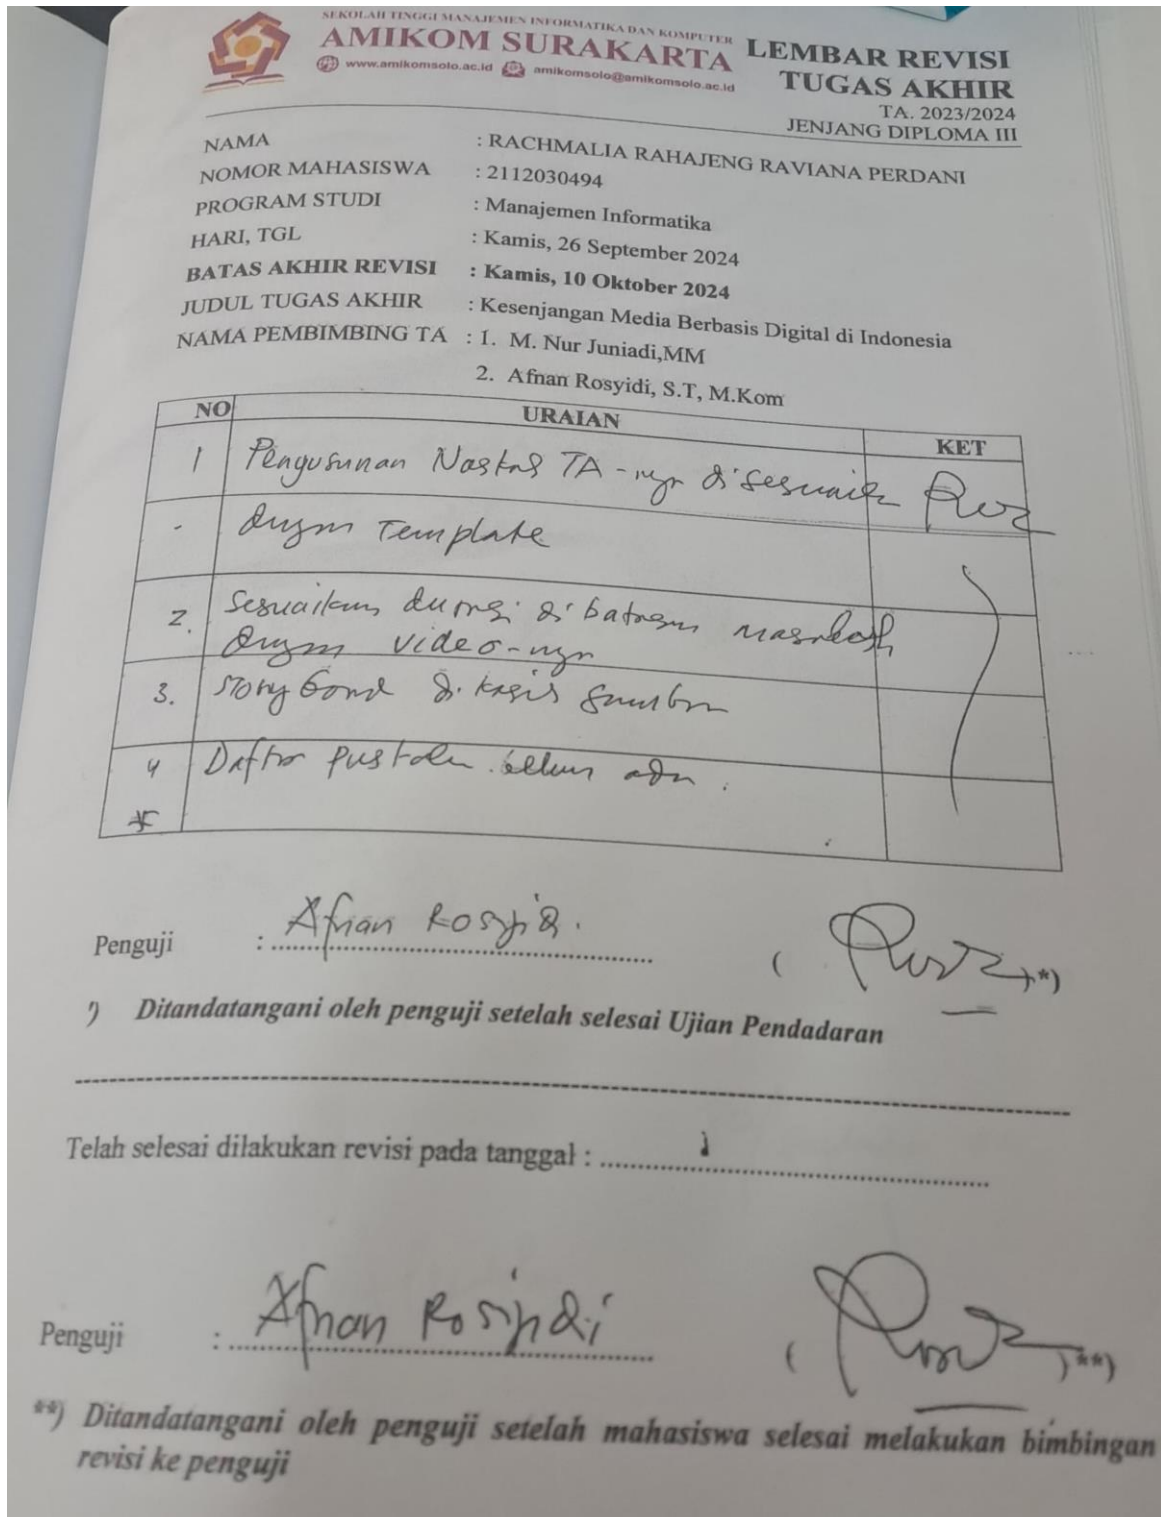 SEKOLAH TINGGI MANAJEMEN INFORMATIKA DAN KOMPUTER
AMIKOM SURAKARTA
www.amikomsolo.ac.id amikomsolo@amikomsolo.ac.id
LEMBAR REVISI
TUGAS AKHIR
TA. 2023/2024
JENJANG DIPLOMA III
NAMA : RACHMALIA RAHAJENG RAVIANA PERDANI
NOMOR MAHASISWA : 2112030494
PROGRAM STUDI : Manajemen Informatika
HARI, TGL : Kamis, 26 September 2024
BATAS AKHIR REVISI : Kamis, 10 Oktober 2024
JUDUL TUGAS AKHIR : Kesenjangan Media Berbasis Digital di Indonesia
NAMA PEMBIMBING TA : 1. M. Nur Juniadi,MM
2. Afnan Rosyidi, S.T, M.Kom
NO URAIAN KET
1 Penyusunan Naskah TA-nya disesuaikan
- dengan Template
2. Sesuaikan durasi di batasan masalah
dengan video-nya
3. Storyboard di kasih
4 Daftar pustaka belum ada.
Penguji : Afnan Rosyid. ( )*)
*) Ditandatangani oleh penguji setelah selesai Ujian Pendadaran
Telah selesai dilakukan revisi pada tanggal :
Penguji : Afnan Rosyidi ( )**)
**) Ditandatangani oleh penguji setelah mahasiswa selesai melakukan bimbingan
revisi ke penguji